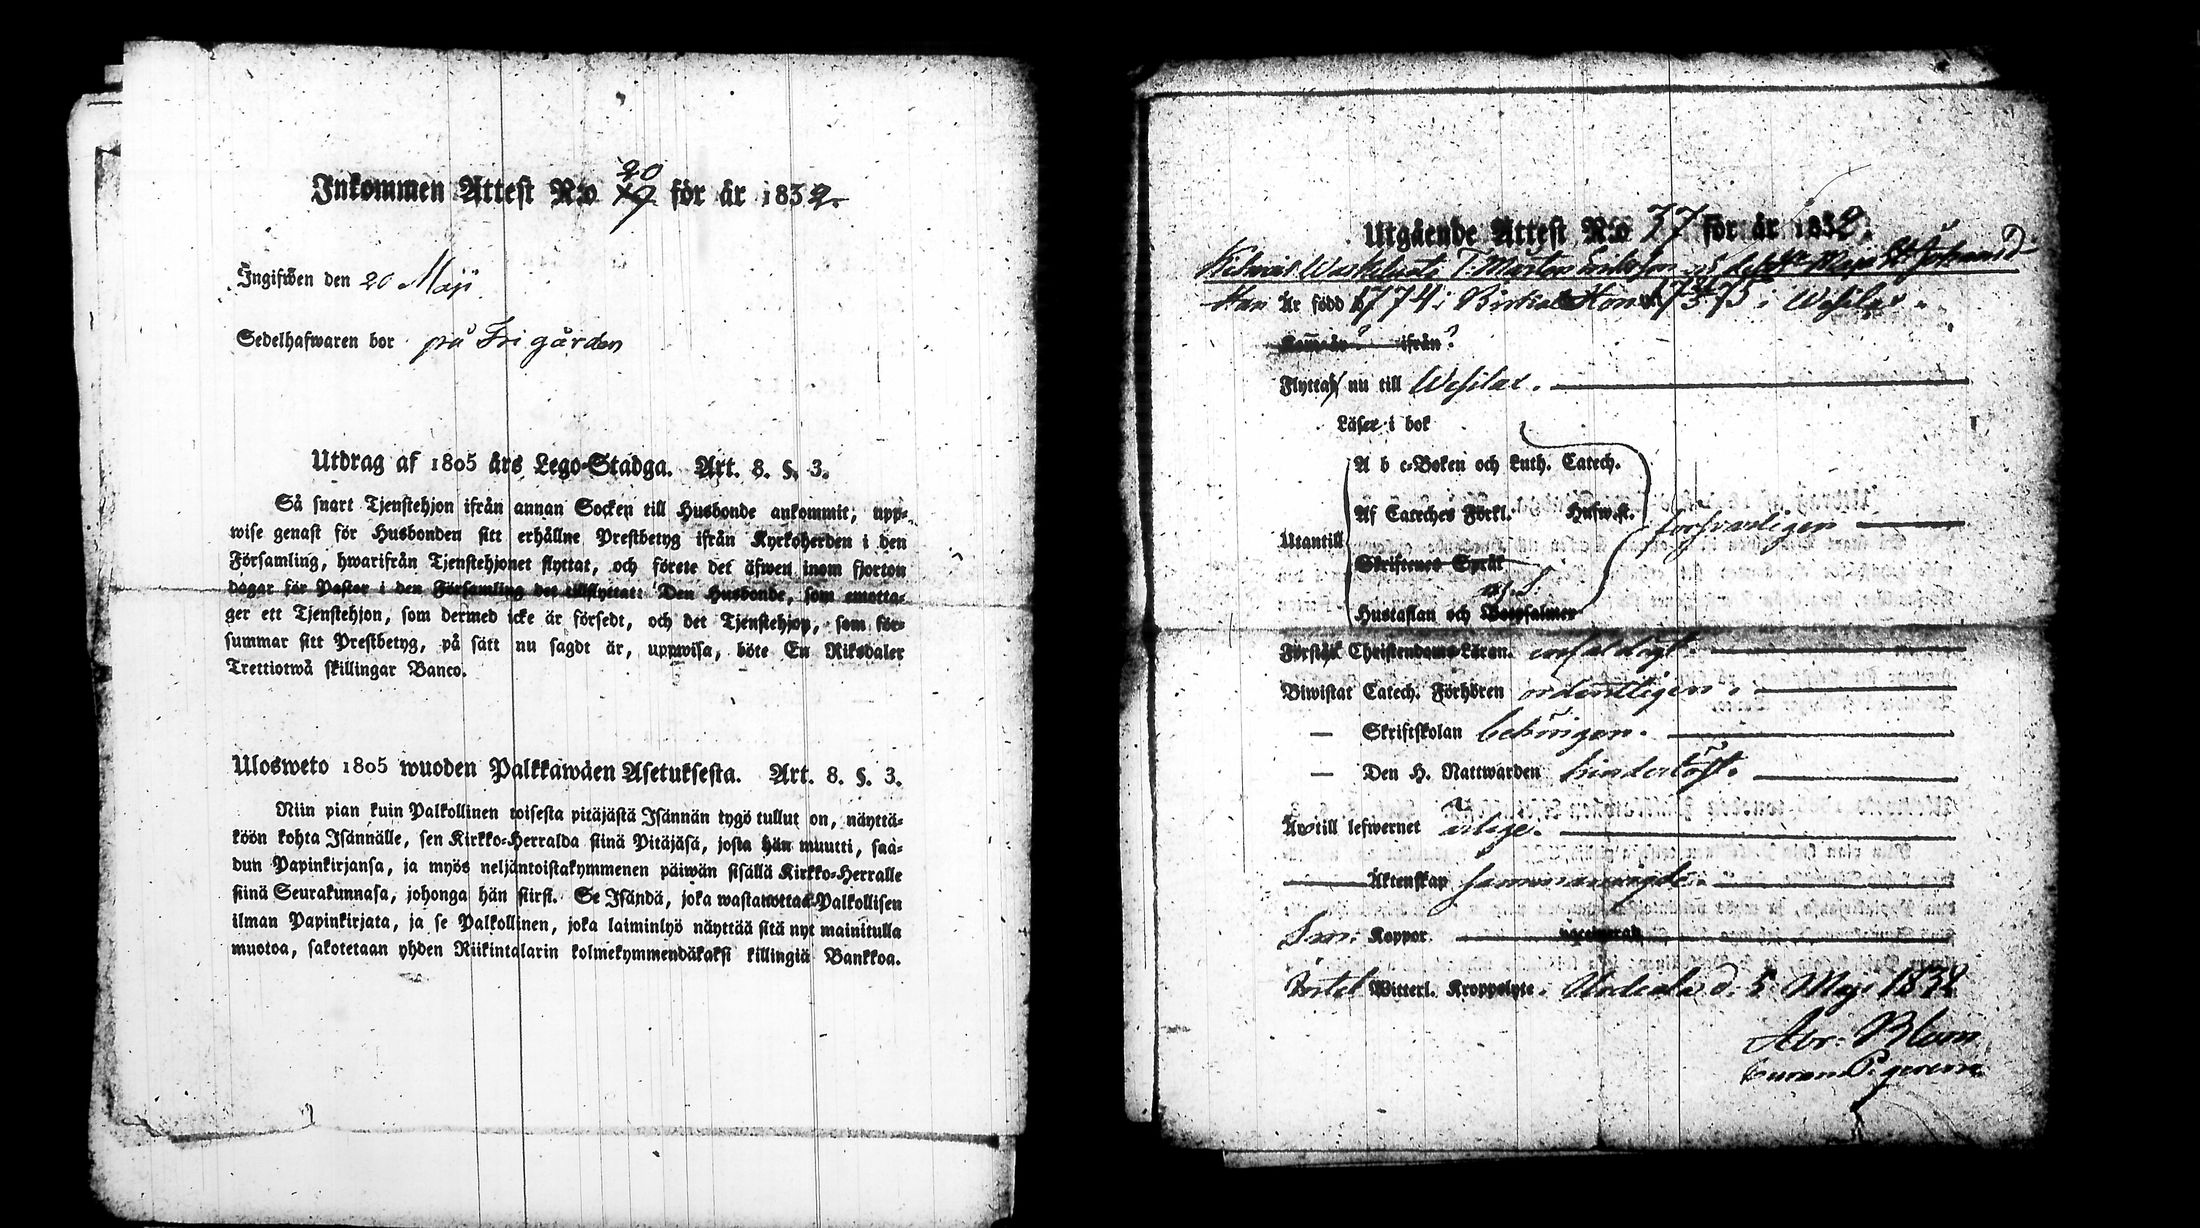 Inkommen Attest N:o 20 för år 1832.
Ingifwen den 20 Maji
Sedelhafwaren bor på Frigården
Utdrag af 1805 års Lego-Stadga. Art. 8. §. 3.
Så snart Tjenstehjon ifrån annan Socken till Husbonde ankommit, upp-
wise genast för Husbonden sitt erhållne Prestbetyg ifrån Kyrkoherden i den
Församling, hwarifrån Tjenstehjonet flyttat, och förete det äfwen inom fjorton
dagar för Pastor i den Församling det tillflyttat: Den Husbonde, som emotta-
ger ett Tjenstehjon, som dermed icke är försedt, och det Tjenstehjon, som för-
summar sitt Prestbetyg, på sätt nu sagdt är, uppwisa, böte En Riksdaler
Trettiotwå skillingar Banco.
Ulosweto 1805 wuoden Palkkawäen Asetuksesta. Art. 8. §. 3.
Niin pian kuin Palkollinen toisesta pitäjästä Isännän tygö tullut on, näyttä-
köön kohta Isännälle, sen Kirkko-Herralda siinä Pitäjäsä, josta hän muutti, saa-
dun Papinkirjansa, ja myös neljäntoistakymmenen päiwän sisällä Kirkko-Herralle
siinä Seurakunnasa, johonga hän siirsi. Se Isändä, joka wastanottaa Palkollisen
ilman Papinkirjata, ja se Palkollinen, joka laiminlyö näyttää sitä nyt mainitulla
muotoa, sakotetaan yhden Riikintalarin kolmekymmendäkaksi killingiä Bankkoa.
Utgående Attest N:o 37 för år 1832.
Mårten Eriksson och Maja
Han Är född 1774 i Birkala Hon i Wesilax.
ifrån?
Flytta nu till Wesilax.
Läser i bok
A b c-Boken och Luth. Catech.
Af Cateches Förkl. Husw.st.
Utantill försvarligen
Skriftenes Språk
Hustaflan och Botpsalmer
Förstår Christendoms Läran. enfaldigt
Biwistat Catech. Förhören ordentligen.
— Skriftskolan behörigen.
— Den H. Nattwarden hinderlöst.
Äro till lefwernet ärlige.
Äktenskap sammanwigde.
Koppor
Witterl. Kroppslyte. d. 5 Maji 1832
Abr: Blom